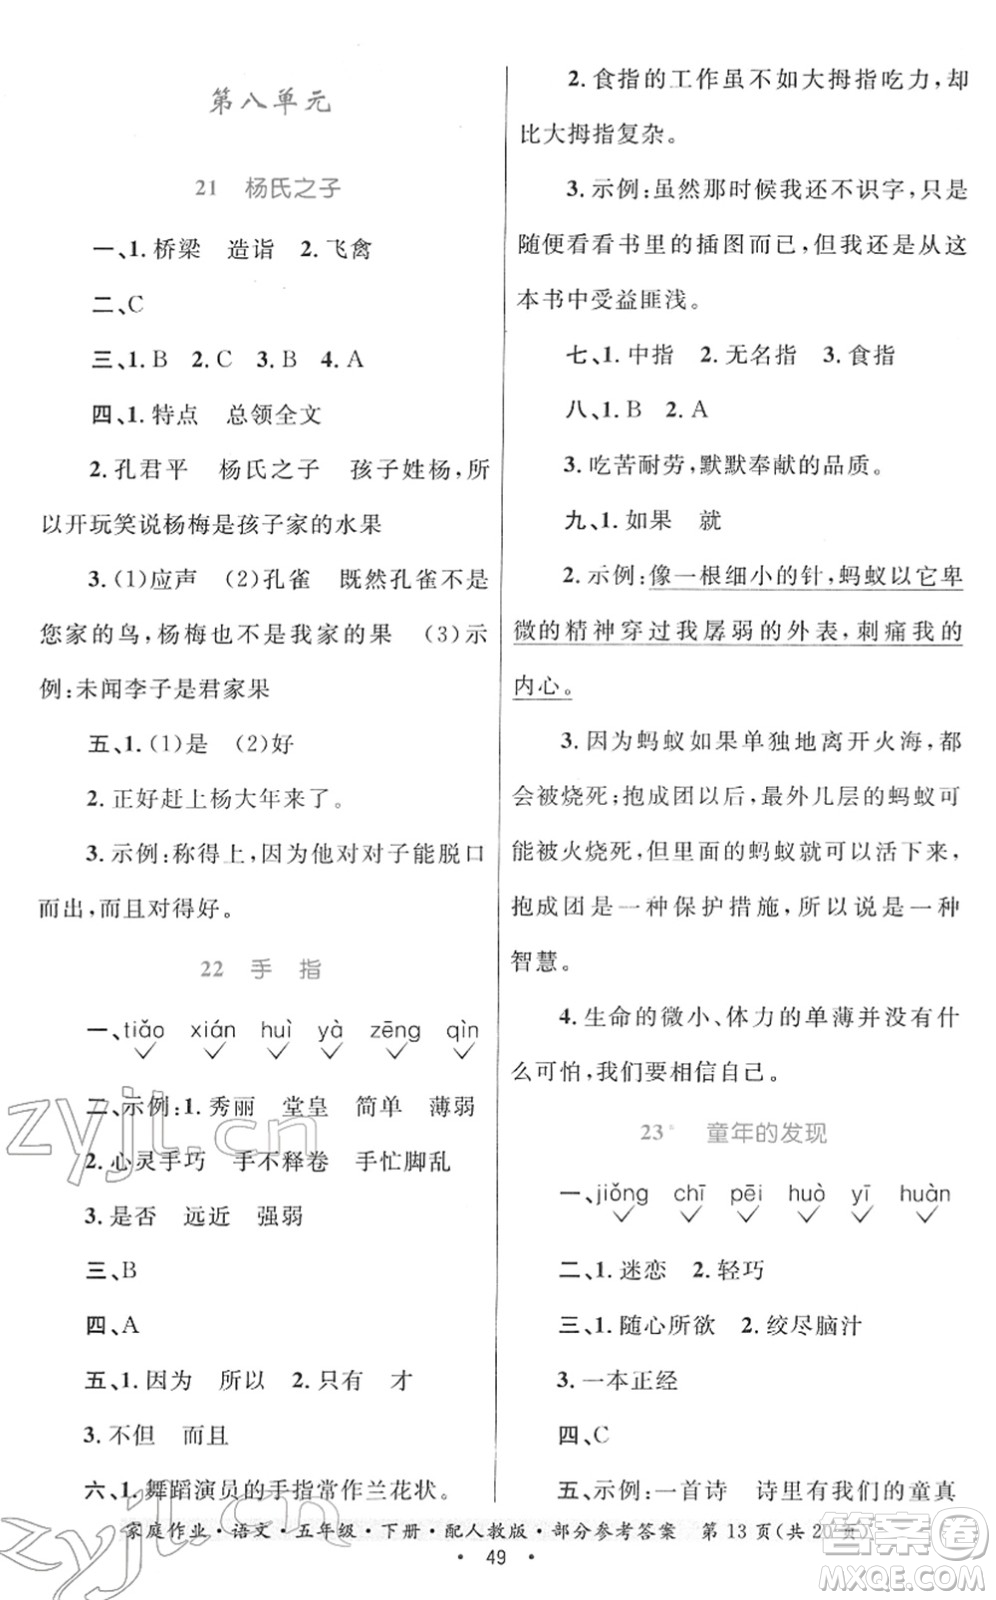 第八单元
21 杨氏之子
一、1.桥梁 造诣 2.飞禽
二、C
三、1.B 2.C 3.B 4.A
四、1.特点 总领全文
2.孔君平 杨氏之子 孩子姓杨,所
以开玩笑说杨梅是孩子家的水果
3.(1)应声 (2)孔雀 既然孔雀不是
您家的鸟,杨梅也不是我家的果 (3)示
例:未闻李子是君家果
五、1.(1)是 (2)好
2.正好赶上杨大年来了。
3.示例:称得上,因为他对对子能脱口
而出,而且对得好。
22 手 指
一、tiǎo xián huì yà zēng qìn
二、示例:1.秀丽 堂皇 简单 薄弱
2.心灵手巧 手不释卷 手忙脚乱
3.是否 远近 强弱
三、B
四、A
五、1.因为 所以 2.只有 才
3.不但 而且
六、1.舞蹈演员的手指常作兰花状。
2.食指的工作虽不如大拇指吃力,却
比大拇指复杂。
3.示例:虽然那时候我还不识字,只是
随便看看书里的插图而已,但我还是从这
本书中受益匪浅。
七、1.中指 2.无名指 3.食指
八、1.B 2.A
3.吃苦耐劳,默默奉献的品质。
九、1.如果 就
2.示例:像一根细小的针,蚂蚁以它卑
微的精神穿过我孱弱的外表,刺痛我的
内心。
3.因为蚂蚁如果单独地离开火海,都
会被烧死;抱成团以后,最外几层的蚂蚁可
能被火烧死,但里面的蚂蚁就可以活下来,
抱成团是一种保护措施,所以说是一种
智慧。
4.生命的微小、体力的单薄并没有什
么可怕,我们要相信自己。
23* 童年的发现
一、jiǒng chī pēi huò yī huàn
二、1.迷恋 2.轻巧
三、1.随心所欲 2.绞尽脑汁
3.一本正经
四、C
五、示例:一首诗 诗里有我们的童真
家庭作业·语文·五年级·下册·配人教版·部分参考答案 第13页(共20页)
· 49 ·
zyjl.cn
zyjl.cn
答案圈
MXQE.COM